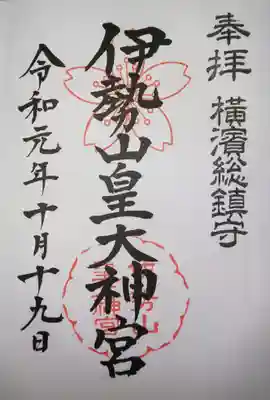 奉拝 横濱総鎮守
伊勢山皇大神宮
令和元年十月十九日